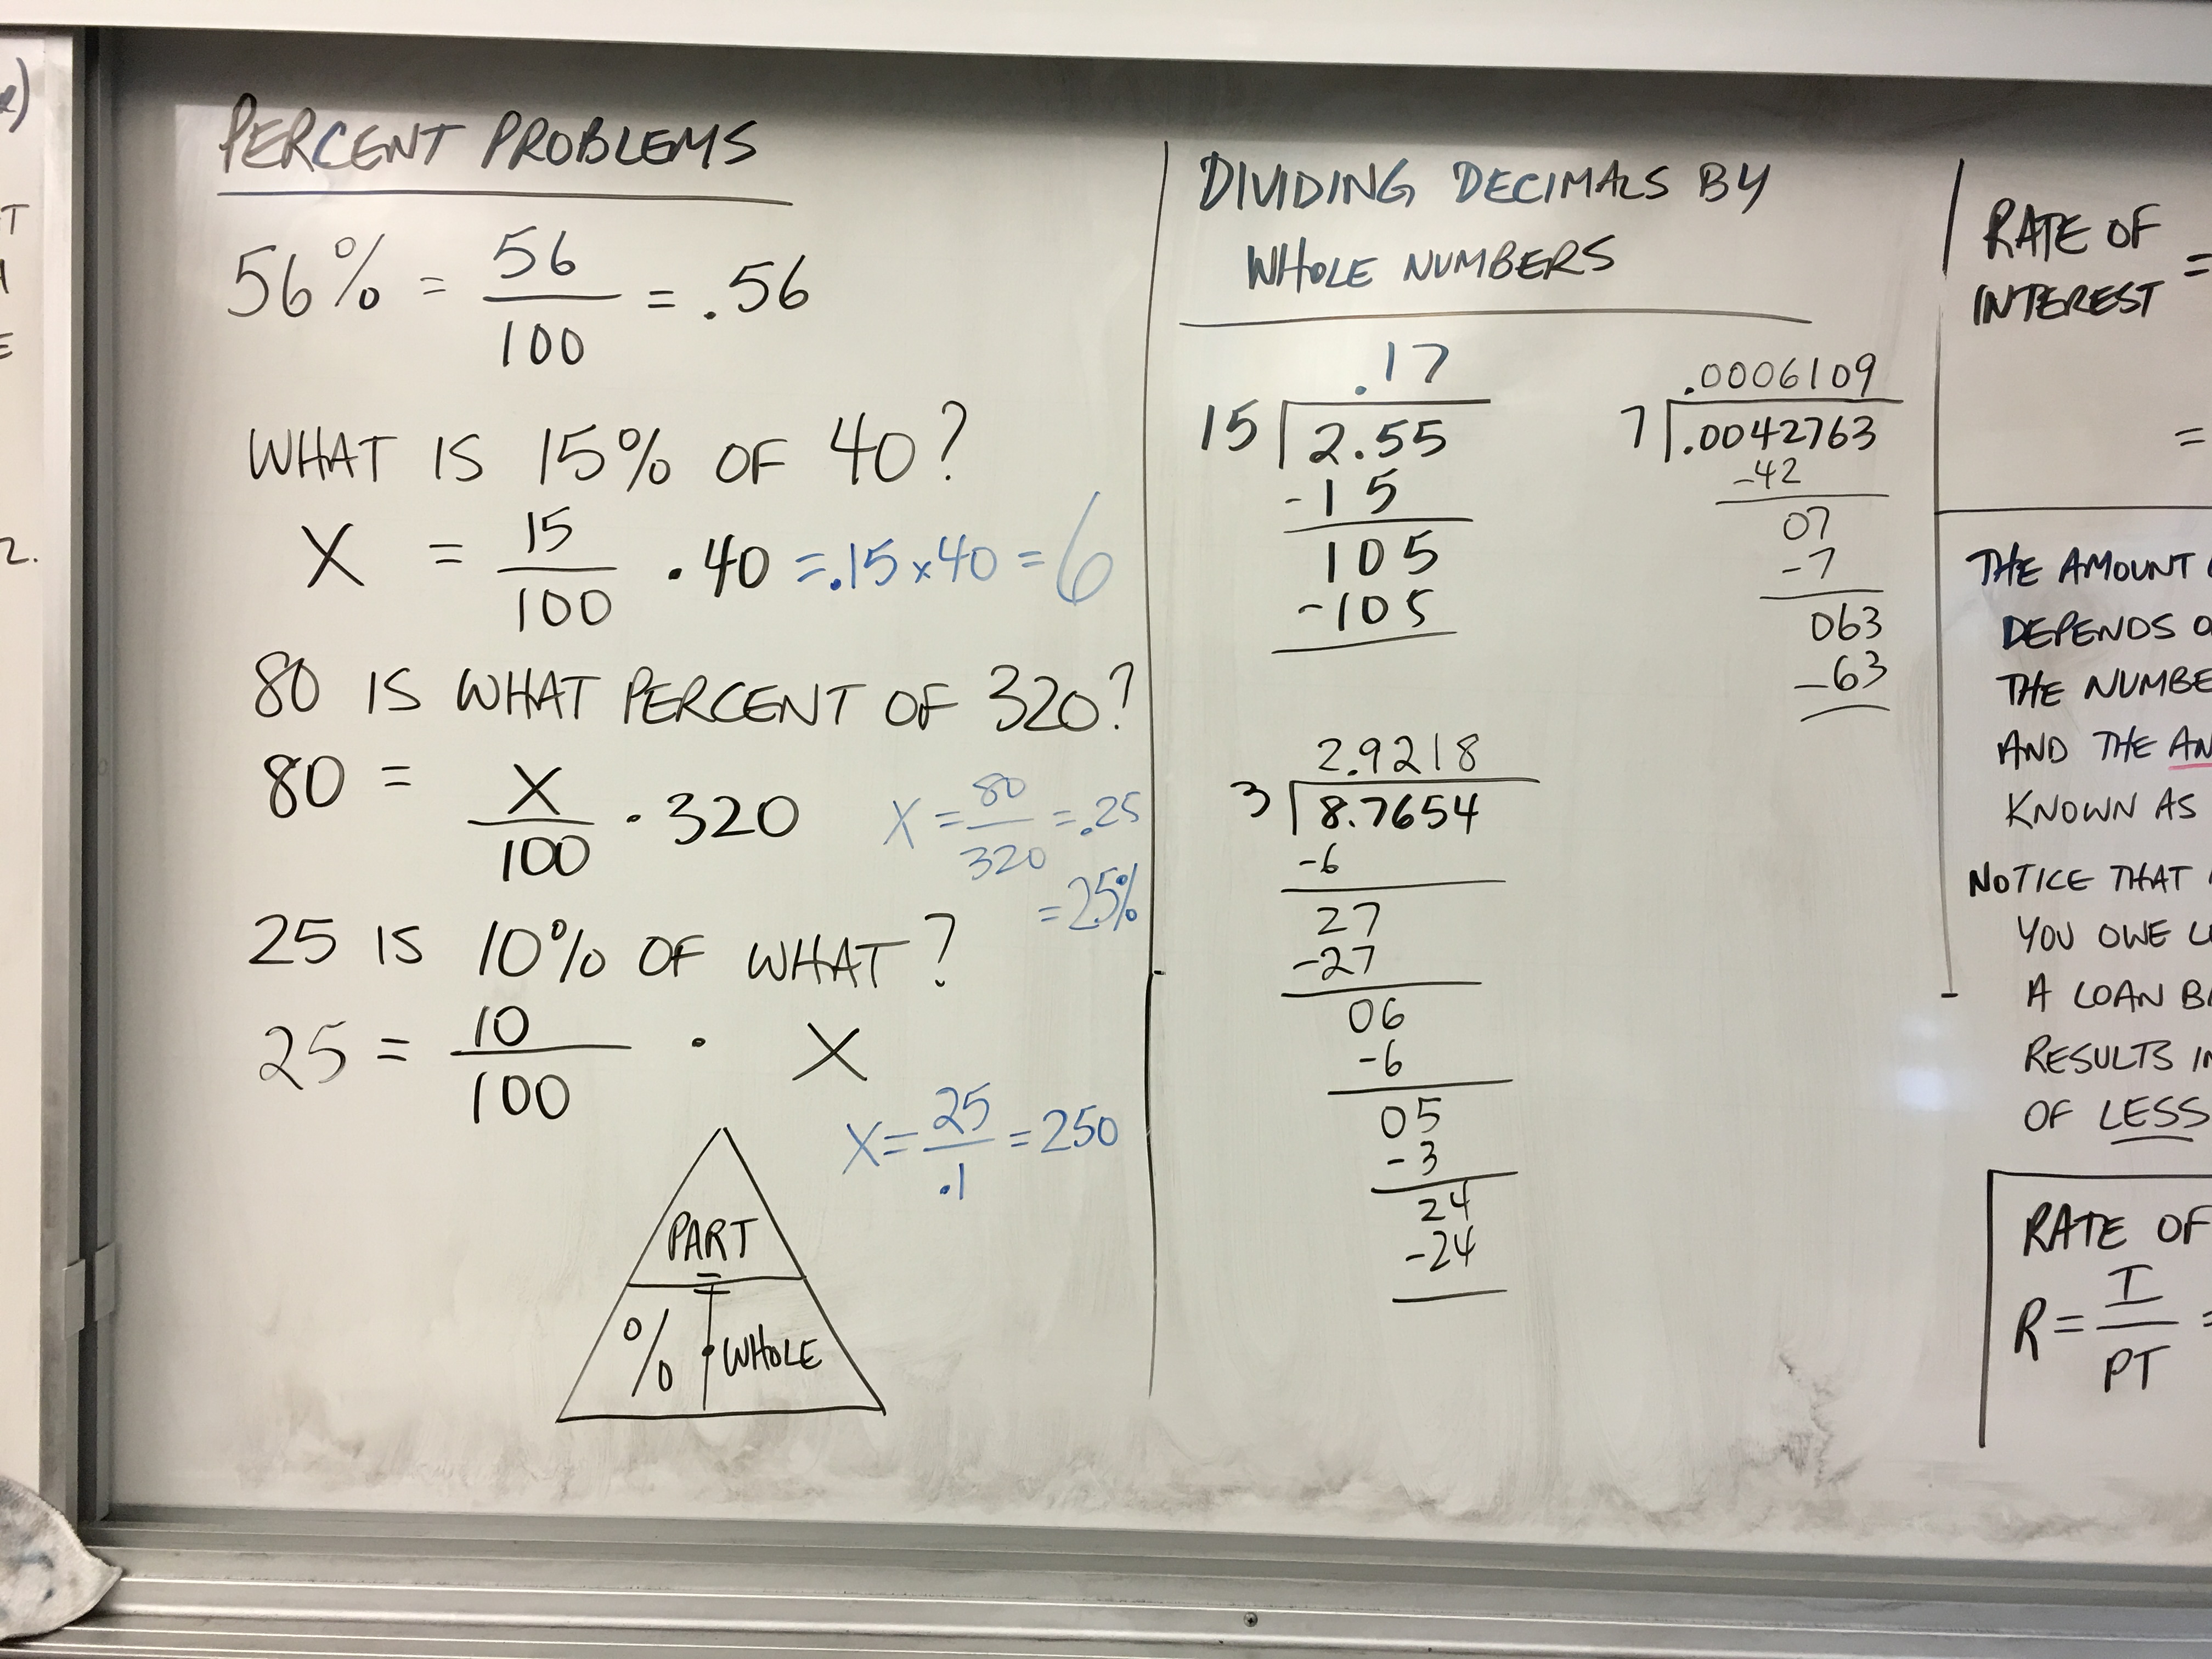 PERCENT PROBLEMS
56% = 56/100 = .56
WHAT IS 15% OF 40?
X = 15/100 · 40 = .15 x 40 = 6
80 IS WHAT PERCENT OF 320?
80 = X/100 · 320
X = 80/320 = .25
= 25%
25 IS 10% OF WHAT?
25 = 10/100 · X
X = 25/.1 = 250
PART
=
% · WHOLE
DIVIDING DECIMALS BY
WHOLE NUMBERS
.17
15 2.55
-15
105
-105
.0006109
7 .0042763
-42
07
-7
063
-63
2.9218
3 8.7654
-6
27
-27
06
-6
05
-3
24
-24
RATE OF
INTEREST =
=
THE AMOUNT
DEPENDS
THE
AND THE
KNOWN AS
NOTICE THAT
YOU OWE
A LOAN
RESULTS
OF LESS
RATE OF
R = I/PT =
2.